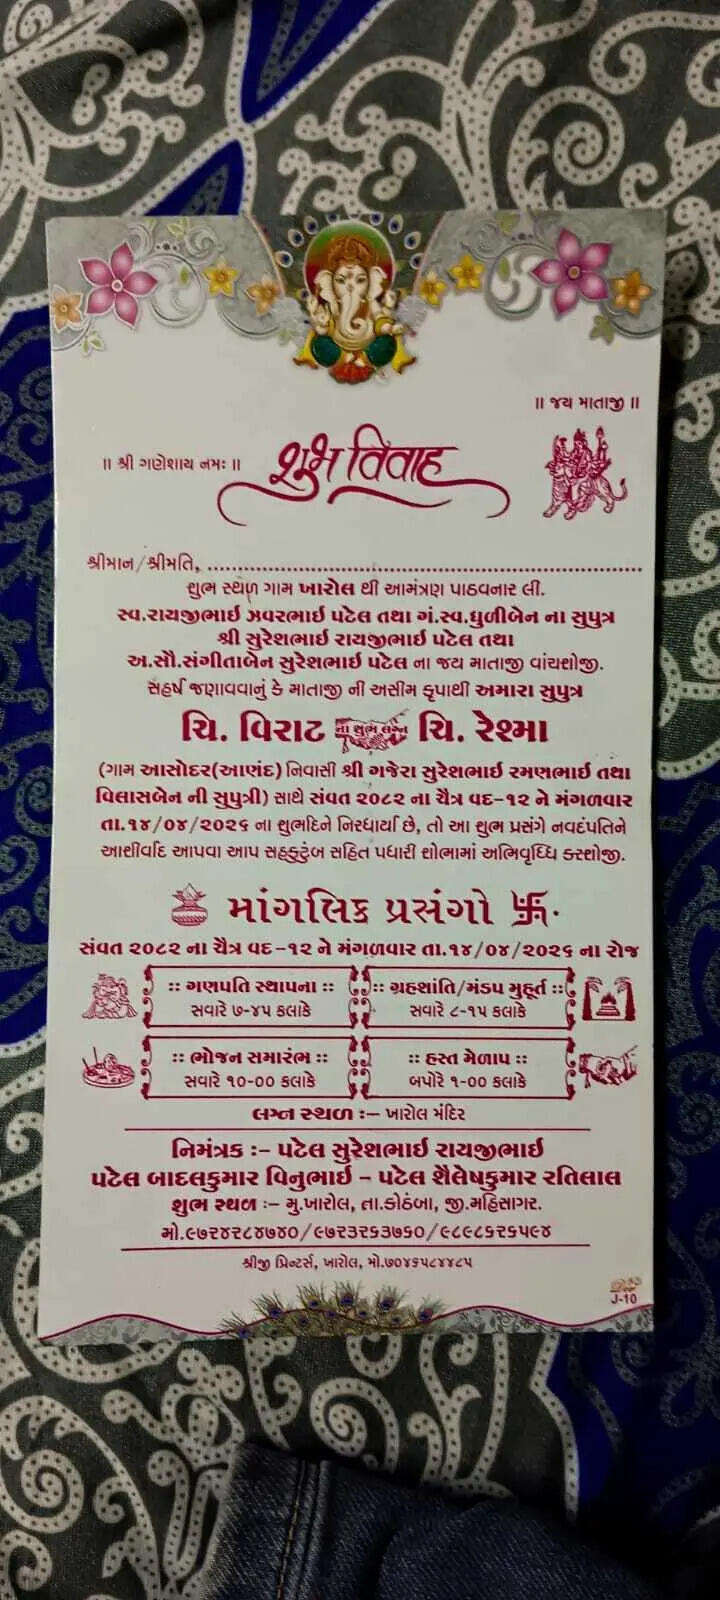 ॥ જય માતાજી ॥
॥ શ્રી ગણેશાય નમઃ ॥
શુભ વિવાહ
શ્રીમાન/શ્રીમતિ, ........................................................................
શુભ સ્થળ ગામ ખારોલ થી આમંત્રણ પાઠવનાર લી.
સ્વ.રાયજીભાઈ ઝવરભાઈ પટેલ તથા ગં.સ્વ.ધુળીબેન ના સુપુત્ર
શ્રી સુરેશભાઈ રાયજીભાઈ પટેલ તથા
અ.સૌ.સંગીતાબેન સુરેશભાઈ પટેલ ના જય માતાજી વાંચશોજી.
સહર્ષ જણાવવાનું કે માતાજી ની અસીમ કૃપાથી અમારા સુપુત્ર
ચિ. વિરાટ ના શુભ લગ્ન ચિ. રેશ્મા
(ગામ આસોદર(આણંદ) નિવાસી શ્રી ગજેરા સુરેશભાઈ રમણભાઈ તથા
વિલાસબેન ની સુપુત્રી) સાથે સંવત ૨૦૮૨ ના ચૈત્ર વદ-૧૨ ને મંગળવાર
તા.૧૪/૦૪/૨૦૨૬ ના શુભદિને નિરધાર્યા છે, તો આ શુભ પ્રસંગે નવદંપતિને
આશીર્વાદ આપવા આપ સહકુટુંબ સહિત પધારી શોભામાં અભિવૃધ્ધિ કરશોજી.
માંગલિક પ્રસંગો 卐
સંવત ૨૦૮૨ ના ચૈત્ર વદ-૧૨ ને મંગળવાર તા.૧૪/૦૪/૨૦૨૬ ના રોજ
:: ગણપતિ સ્થાપના ::
સવારે ૭-૪૫ કલાકે
:: ગ્રહશાંતિ/મંડપ મુહૂર્ત ::
સવારે ૮-૧૫ કલાકે
:: ભોજન સમારંભ ::
સવારે ૧૦-૦૦ કલાકે
:: હસ્ત મેળાપ ::
બપોરે ૧-૦૦ કલાકે
લગ્ન સ્થળ :– ખારોલ મંદિર
નિમંત્રક :– પટેલ સુરેશભાઈ રાયજીભાઈ
પટેલ બાદલકુમાર વિનુભાઈ – પટેલ શૈલેષકુમાર રતિલાલ
શુભ સ્થળ :– મુ.ખારોલ, તા.કોઠંબા, જી.મહિસાગર.
મો.૯૭૨૪૨૮૪૭૪૦/૯૭૨૩૨૬૩૭૬૦/૯૮૯૮૬૨૬૫૯૪
શ્રીજી પ્રિન્ટર્સ, ખારોલ, મો.૭૦૪૬૫૮૪૪૮૫
J-10